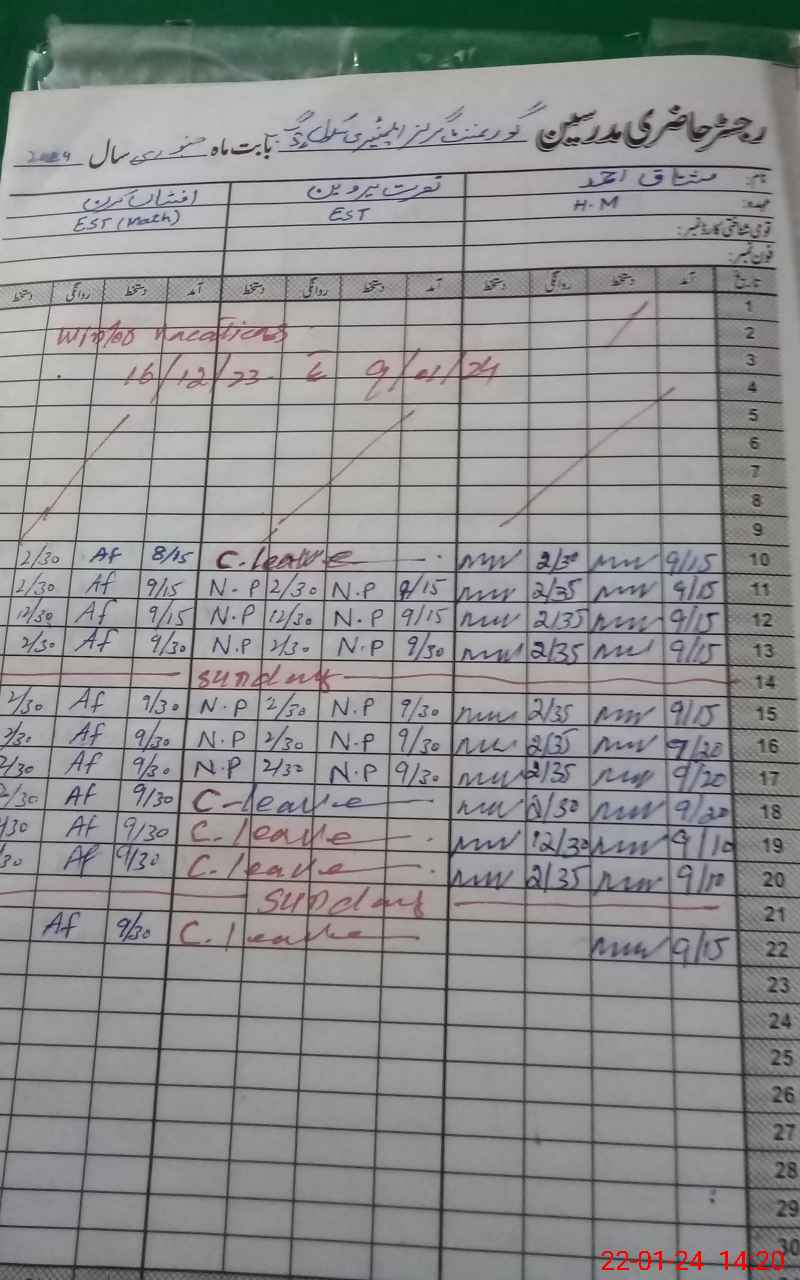 رجسٹر حاضری مدرسین گورنمنٹ گرلز ایلیمنٹری سکول بابت ماہ جنوری سال 2024
نام: مشتاق احمد نصرت پروین افشاں کرن
عہدہ: H.M EST EST (Math)
قومی شناختی کارڈ نمبر:
فون نمبر:
تاریخ آمد دستخط روانگی دستخط آمد دستخط روانگی دستخط آمد دستخط روانگی دستخط
1
2 Winter vacations
3 16/12/23 تا 9/01/24
4
5
6
7
8
9
2/30 Af 8/15 C.leave mw 2/30 mw 9/15 10
2/30 Af 9/15 N.P 2/30 N.P 9/15 mw 2/35 mw 9/15 11
12/30 Af 9/15 N.P 12/30 N.P 9/15 mw 2/35 mw 9/15 12
2/30 Af 9/30 N.P 2/30 N.P 9/30 mw 2/35 mw 9/15 13
sunday 14
2/30 Af 9/30 N.P 2/30 N.P 9/30 mw 2/35 mw 9/15 15
2/30 Af 9/30 N.P 2/30 N.P 9/30 mw 2/35 mw 9/20 16
2/30 Af 9/30 N.P 2/30 N.P 9/30 mw 2/35 mw 9/20 17
2/30 Af 9/30 C-leave mw 2/30 mw 9/20 18
/30 Af 9/30 C.leave mw 12/30 mw 9/10 19
/30 Af 9/30 C.leave mw 2/35 mw 9/10 20
sunday 21
Af 9/30 C.leave mw 9/15 22
23
24
25
26
27
28
29
30
22-01-24 14:20